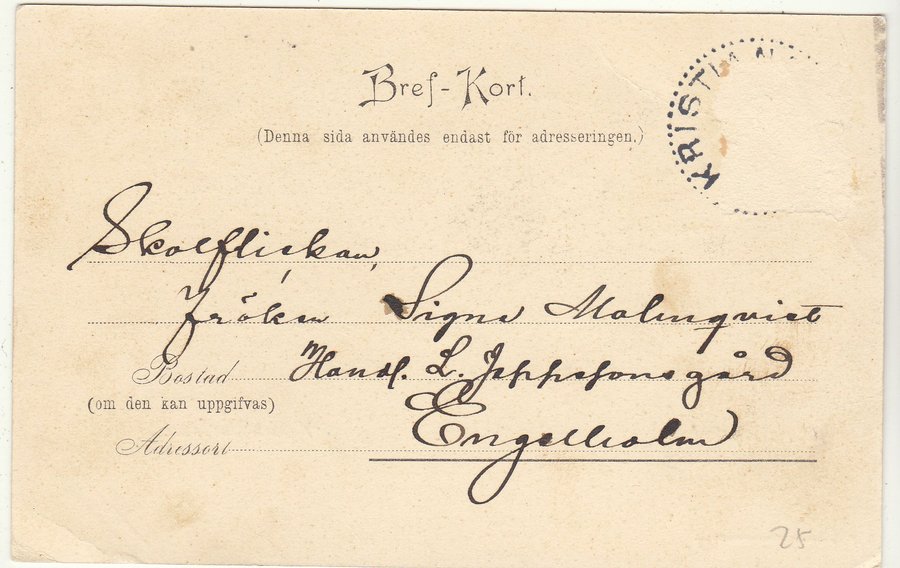 Bref-Kort.
KRISTIAN
(Denna sida användes endast för adresseringen.)
Skolflickan,
fröken Signe Malmqvist
Bostad Handl. L. Jeppssonsgård
(om den kan uppgifvas)
Adressort Engelholm
25